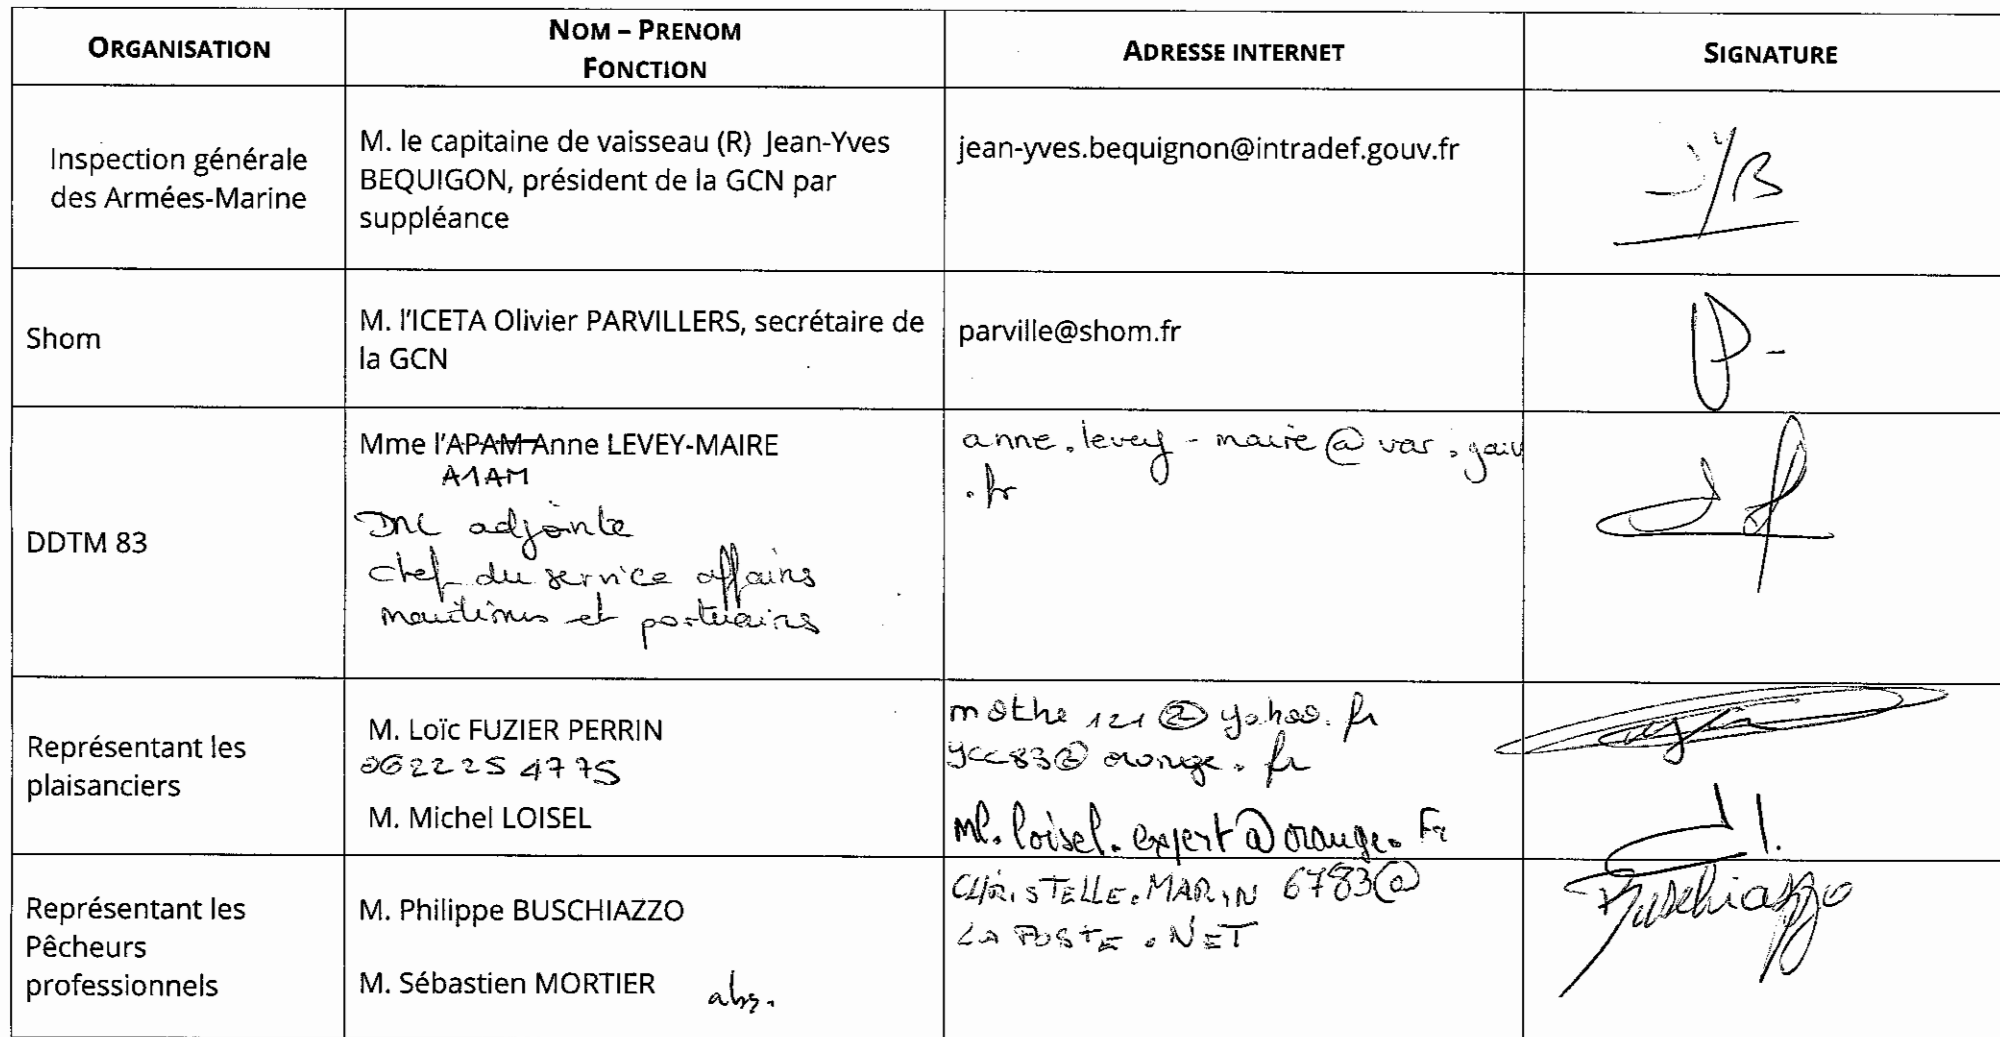 ORGANISATION
NOM – PRENOM
FONCTION
ADRESSE INTERNET
SIGNATURE
Inspection générale
des Armées-Marine
M. le capitaine de vaisseau (R) Jean-Yves
BEQUIGON, président de la GCN par
suppléance
jean-yves.bequignon@intradef.gouv.fr
JYB
Shom
M. l'ICETA Olivier PARVILLERS, secrétaire de
la GCN
parville@shom.fr
DDTM 83
Mme l'APAM Anne LEVEY-MAIRE
A1AM
DML adjointe
chef du service affaires
maritimes et portuaires
anne.levey-maire@var.gouv
.fr
Représentant les
plaisanciers
M. Loïc FUZIER PERRIN
0622254775
M. Michel LOISEL
mothe121@yahoo.fr
ycc83@orange.fr
ml.loisel.expert@orange.Fr
Représentant les
Pêcheurs
professionnels
M. Philippe BUSCHIAZZO
M. Sébastien MORTIER abs.
CHRISTELLE.MARIN6783@
LAPOSTE.NET
Buschiazzo